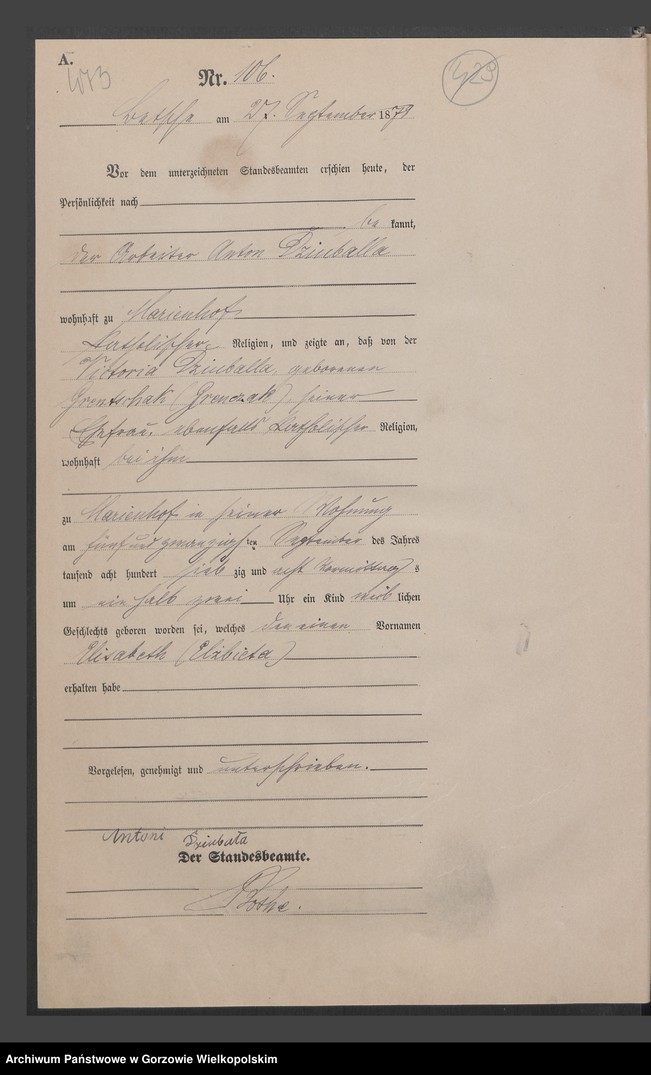 A.
Nr. 106.
423
Betsche am 27. September 1878
Vor dem unterzeichneten Standesbeamten erschien heute, der
Persönlichkeit nach
be kannt,
der Arbeiter Anton Dziuballa
wohnhaft zu Marienhof
katholischer Religion, und zeigte an, daß von der
Victoria Dziuballa, geborenen
Grentschak (Grenczak), seiner
Ehefrau, ebenfalls katholischer Religion,
wohnhaft bei ihm
zu Marienhof in seiner Wohnung
am fünf und zwanzigsten September des Jahres
tausend acht hundert sieb zig und acht Vormittags
um ein halb zwei Uhr ein Kind weib lichen
Geschlechts geboren worden sei, welches den einen Vornamen
Elisabeth (Elzbieta)
erhalten habe
Vorgelesen, genehmigt und unterschrieben.
Antoni Dziubała
Der Standesbeamte.
Archiwum Państwowe w Gorzowie Wielkopolskim